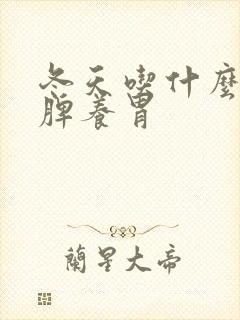 冬天喫什麼
脾養胃
蘭星大帝